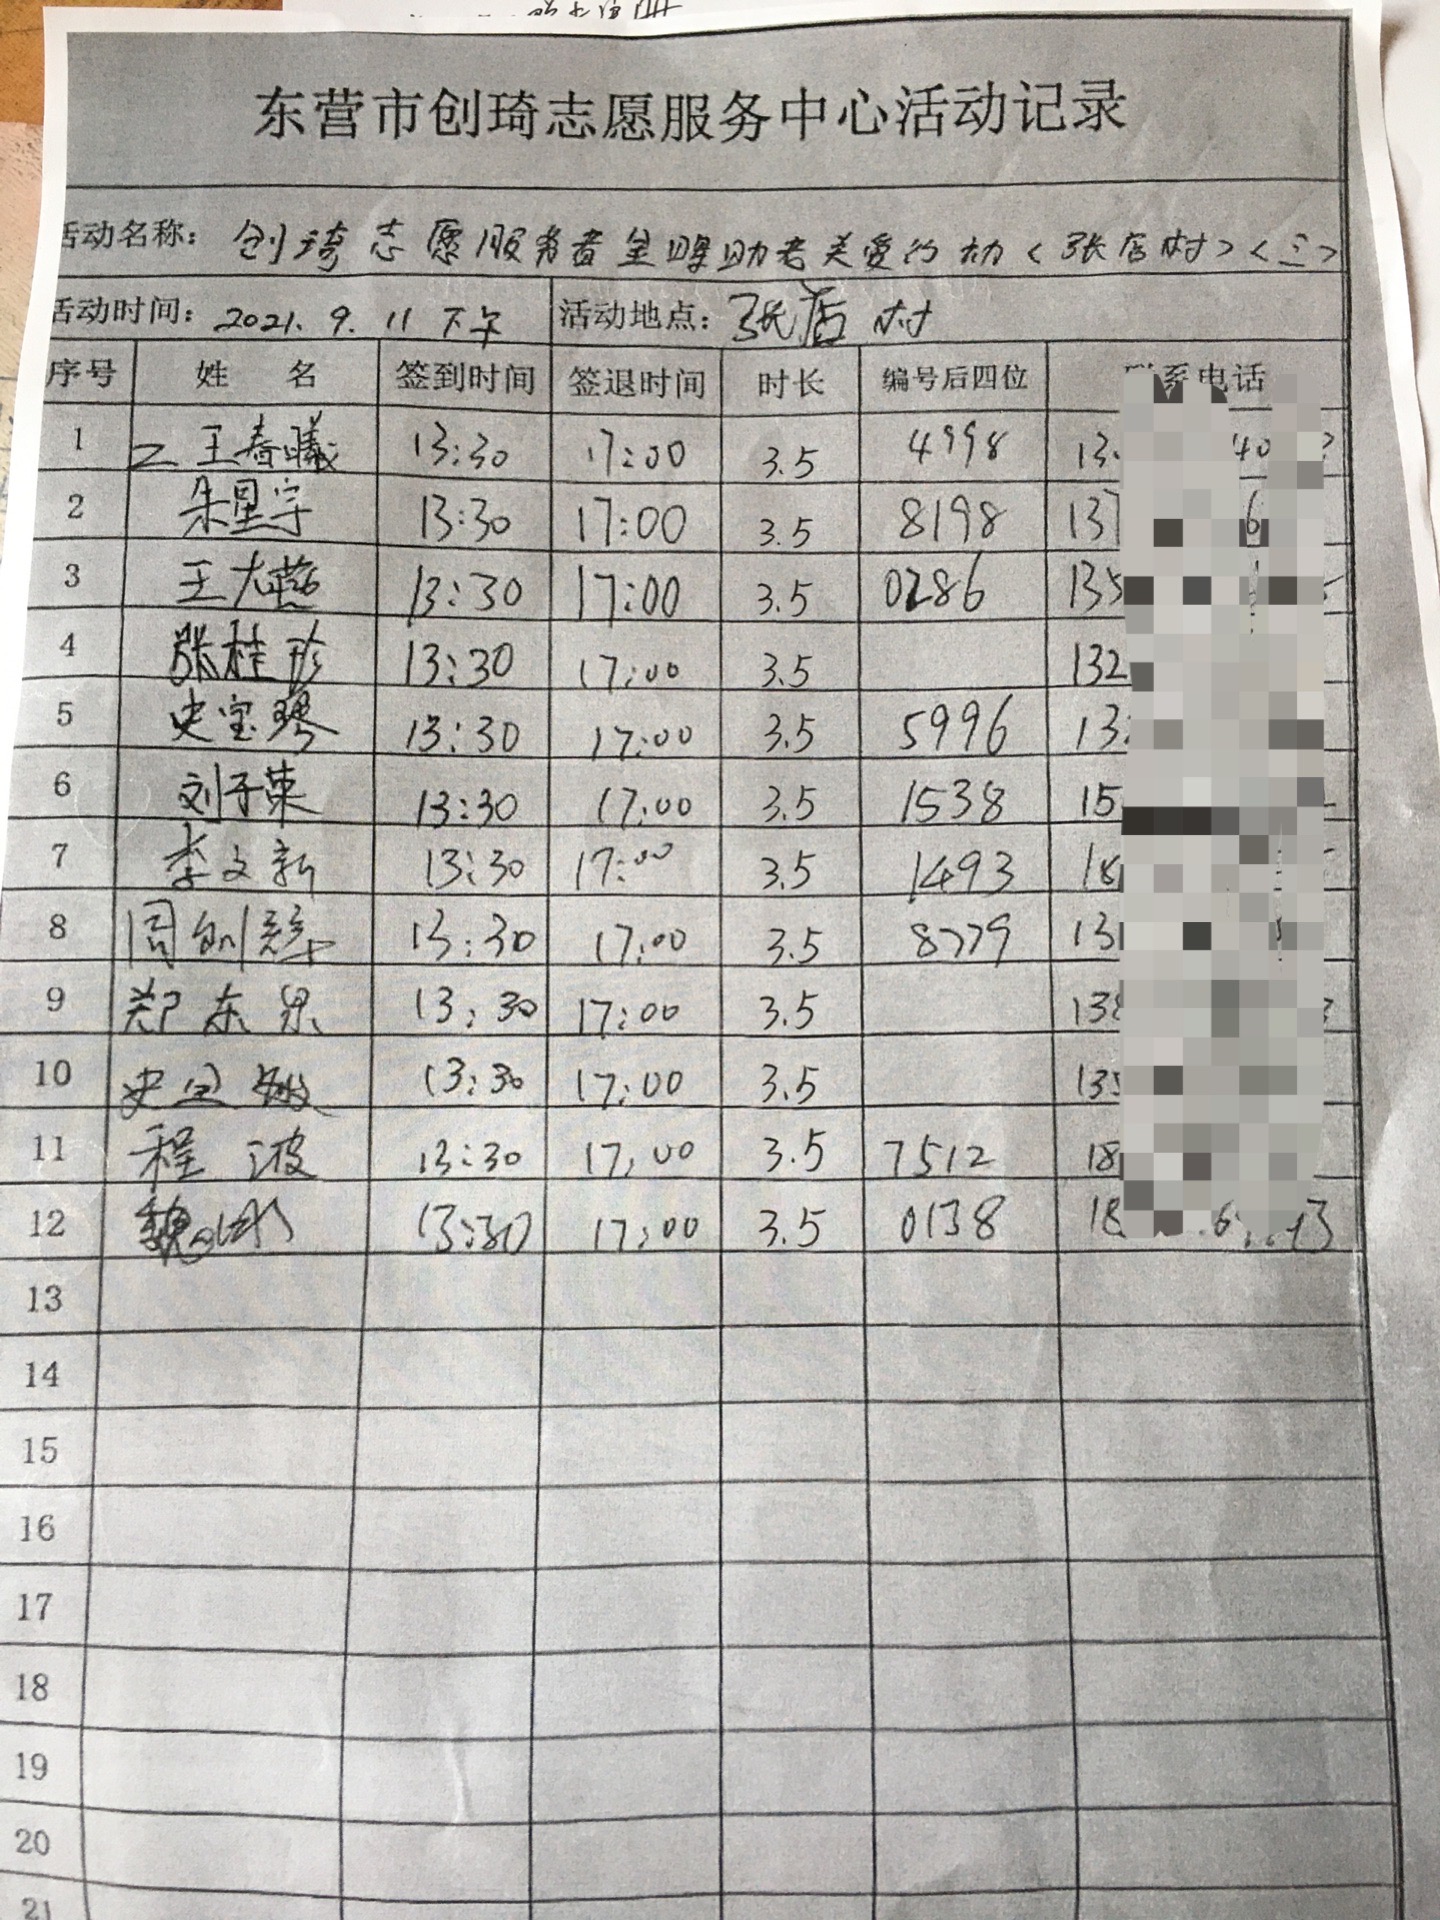 东营市创琦志愿服务中心活动记录
活动名称: 创琦志愿服务者呈晖助老关爱行动<张店村><三>
活动时间: 2021.9.11下午 活动地点: 张店村
序号 姓名 签到时间 签退时间 时长 编号后四位 联系电话
1 王春曦 13:30 17:00 3.5 4998 13
2 朱星宇 13:30 17:00 3.5 8198 137
3 王大燕 13:30 17:00 3.5 0286 135
4 张桂珍 13:30 17:00 3.5 132
5 史宝琴 13:30 17:00 3.5 5996 13
6 刘子荣 13:30 17:00 3.5 1538 15
7 李文新 13:30 17:00 3.5 1493 18
8 周 13:30 17:00 3.5 8779 13
9 郑东 13:30 17:00 3.5 138
10 史 13:30 17:00 3.5 135
11 程波 13:30 17:00 3.5 7512 18
12 魏 13:30 17:00 3.5 0138 18
13
14
15
16
17
18
19
20
21